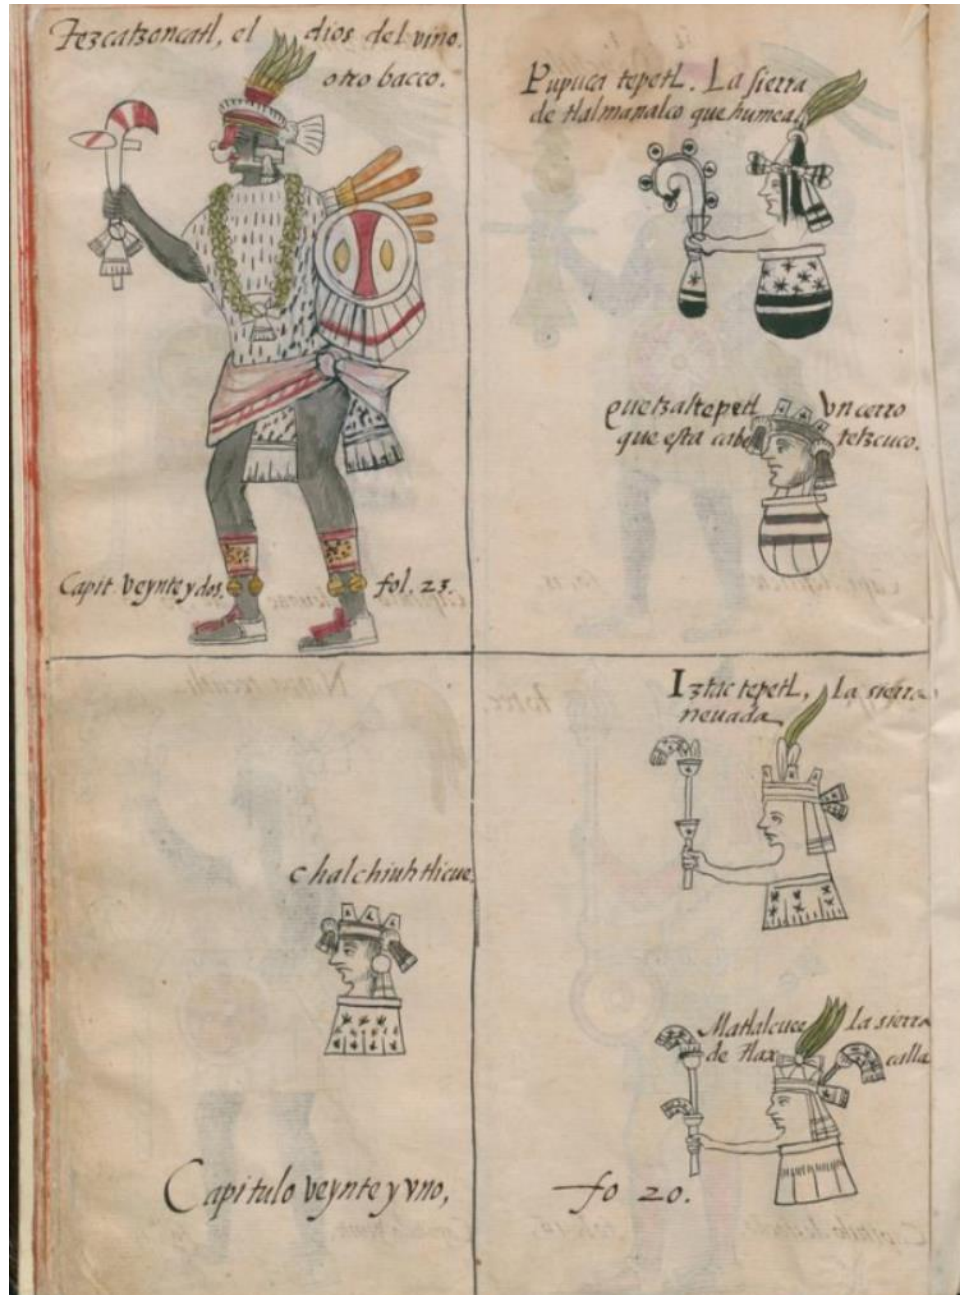 Tezcatzoncatl, el dios del vino.
otro bacco.
Capit. veynte y dos. fol. 23.
Pupuca tepetl. La sierra
de tlalmanalco que humea.
quetzaltepetl Vn cerro
que esta cabe tetzcuco.
chalchiuhtlicue.
Iztac tepetl, La sierra
neuada
Matlalcuee La sierra
de tlax calla
Capitulo veynte y vno, fo 20.